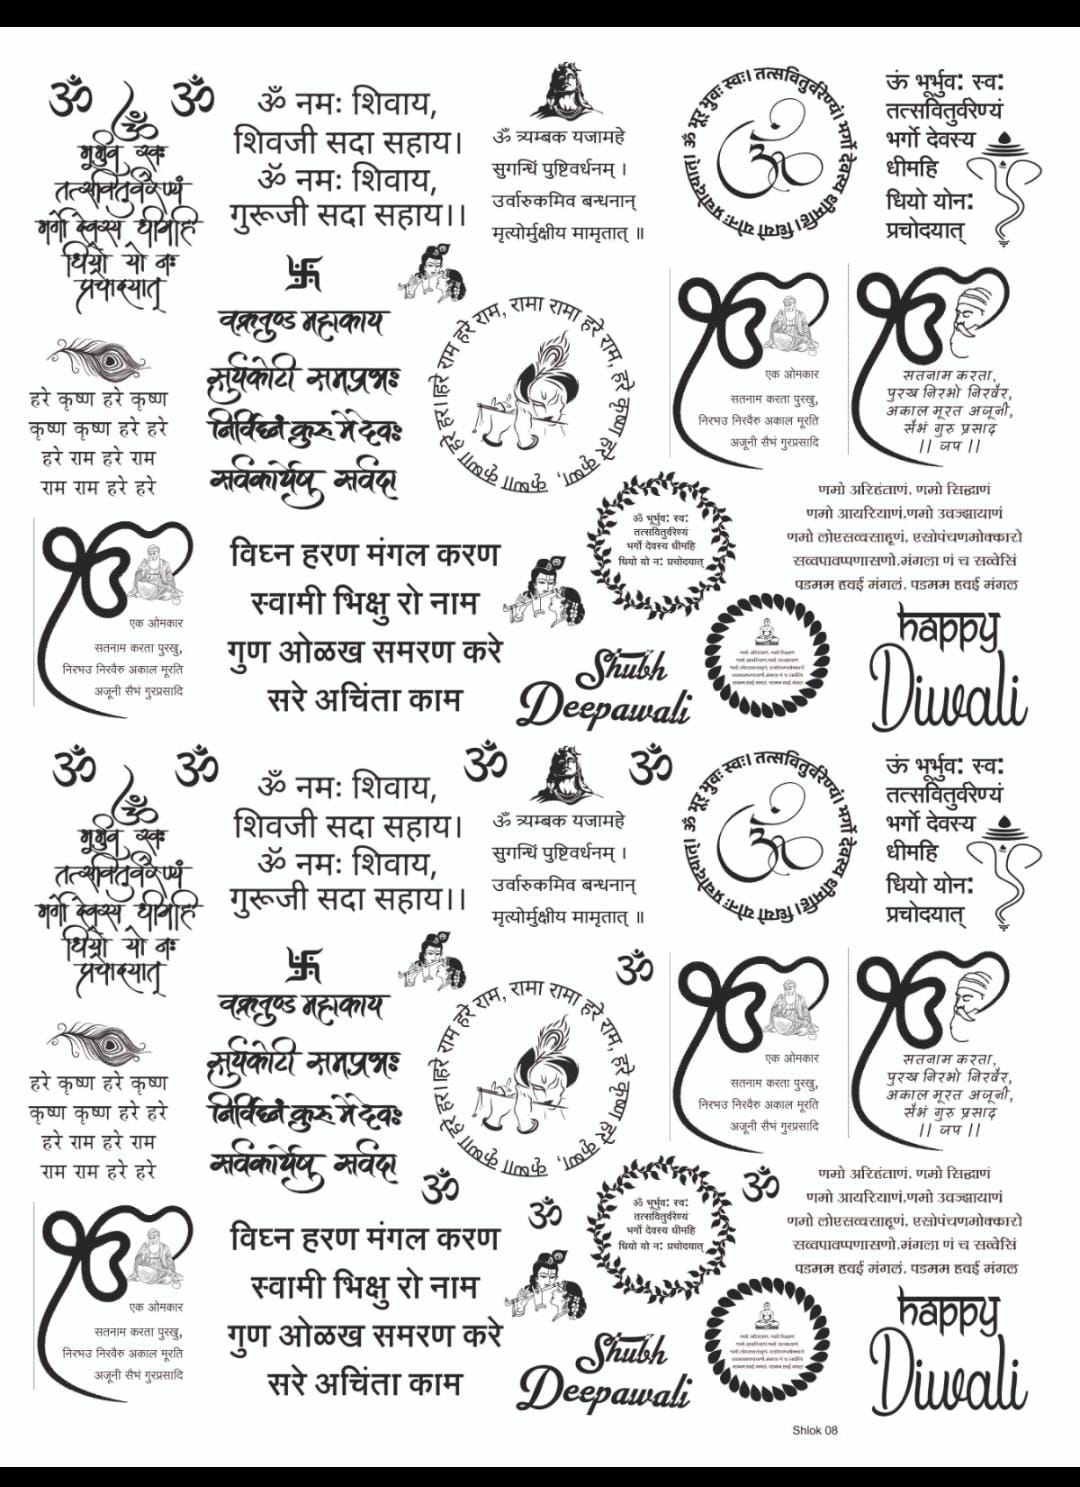 ॐ
ॐ
ॐ
भूर्भुवः स्वः
तत्सवितुर्वरेण्यं
भर्गो देवस्य धीमहि
धियो यो नः
प्रचोदयात्
ॐ नमः शिवाय,
शिवजी सदा सहाय।
ॐ नमः शिवाय,
गुरूजी सदा सहाय।।
ॐ त्र्यम्बक यजामहे
सुगन्धिं पुष्टिवर्धनम् ।
उर्वारुकमिव बन्धनान्
मृत्योर्मुक्षीय मामृतात् ॥
ॐ भूर् भुवः स्वः। तत्सवितुर्वरेण्यं। भर्गो देवस्य धीमहि। धियो योनः प्रचोदयात्।
ॐ
ऊं भूर्भुव: स्व:
तत्सवितुर्वरेण्यं
भर्गो देवस्य
धीमहि
धियो योन:
प्रचोदयात्
卐
वक्रतुण्ड महाकाय
सूर्यकोटी समप्रभः
निर्विघ्नं कुरु मे देवः
सर्वकार्येषु सर्वदा
हरे राम, रामा रामा हरे राम, हरे कृष्ण हरे कृष्ण, कृष्ण कृष्णा हरे हरा।
ੴ
एक ओमकार
सतनाम करता पुरखु,
निरभउ निरवैरु अकाल मूरति
अजूनी सैभं गुरप्रसादि
ੴ
सतनाम करता,
पुरख निरभो निरवैर,
अकाल मूरत अजूनी,
सैभं गुरु प्रसाद
|| जप ||
हरे कृष्ण हरे कृष्ण
कृष्ण कृष्ण हरे हरे
हरे राम हरे राम
राम राम हरे हरे
ॐ भूर्भुव: स्व:
तत्सवितुर्वरेण्यं
भर्गो देवस्य धीमहि
धियो यो न: प्रचोदयात्
णमो अरिहंताणं, णमो सिद्धाणं
णमो आयरियाणं,णमो उवज्झायाणं
णमो लोएसव्वसाहूणं, एसोपंचणमोक्कारो
सव्वपावप्पणासणो,मंगला णं च सव्वेसिं
पडमम हवई मंगलं, पडमम हवई मंगल
ੴ
एक ओमकार
सतनाम करता पुरखु,
निरभउ निरवैरु अकाल मूरति
अजूनी सैभं गुरप्रसादि
विघ्न हरण मंगल करण
स्वामी भिक्षु रो नाम
गुण ओळख समरण करे
सरे अचिंता काम
Shubh
Deepawali
happy
Diwali
ॐ
ॐ
ॐ
ॐ
ॐ
भूर्भुवः स्वः
तत्सवितुर्वरेण्यं
भर्गो देवस्य धीमहि
धियो यो नः
प्रचोदयात्
ॐ नमः शिवाय,
शिवजी सदा सहाय।
ॐ नमः शिवाय,
गुरूजी सदा सहाय।।
ॐ त्र्यम्बक यजामहे
सुगन्धिं पुष्टिवर्धनम् ।
उर्वारुकमिव बन्धनान्
मृत्योर्मुक्षीय मामृतात् ॥
ॐ भूर् भुवः स्वः। तत्सवितुर्वरेण्यं। भर्गो देवस्य धीमहि। धियो योनः प्रचोदयात्।
ॐ
ऊं भूर्भुव: स्व:
तत्सवितुर्वरेण्यं
भर्गो देवस्य
धीमहि
धियो योन:
प्रचोदयात्
卐
वक्रतुण्ड महाकाय
सूर्यकोटी समप्रभः
निर्विघ्नं कुरु मे देवः
सर्वकार्येषु सर्वदा
हरे राम, रामा रामा हरे राम, हरे कृष्ण हरे कृष्ण, कृष्ण कृष्णा हरे हरा।
ॐ
ੴ
एक ओमकार
सतनाम करता पुरखु,
निरभउ निरवैरु अकाल मूरति
अजूनी सैभं गुरप्रसादि
ੴ
सतनाम करता,
पुरख निरभो निरवैर,
अकाल मूरत अजूनी,
सैभं गुरु प्रसाद
|| जप ||
हरे कृष्ण हरे कृष्ण
कृष्ण कृष्ण हरे हरे
हरे राम हरे राम
राम राम हरे हरे
ॐ
ॐ
ॐ
ॐ भूर्भुव: स्व:
तत्सवितुर्वरेण्यं
भर्गो देवस्य धीमहि
धियो यो न: प्रचोदयात्
णमो अरिहंताणं, णमो सिद्धाणं
णमो आयरियाणं,णमो उवज्झायाणं
णमो लोएसव्वसाहूणं, एसोपंचणमोक्कारो
सव्वपावप्पणासणो,मंगला णं च सव्वेसिं
पडमम हवई मंगलं, पडमम हवई मंगल
ੴ
एक ओमकार
सतनाम करता पुरखु,
निरभउ निरवैरु अकाल मूरति
अजूनी सैभं गुरप्रसादि
विघ्न हरण मंगल करण
स्वामी भिक्षु रो नाम
गुण ओळख समरण करे
सरे अचिंता काम
Shubh
Deepawali
happy
Diwali
Shlok 08